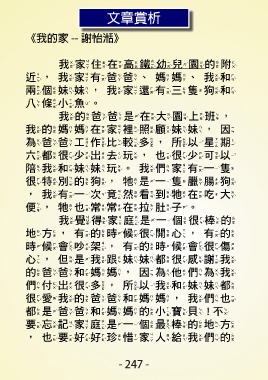 文章賞析
《我的家 -- 謝怡湉》
我家住在高鐵幼兒園的附
近，我家有爸爸、媽媽、我和
兩個妹妹，我家還有三隻狗和
八條小魚。
我的爸爸是在大園上班，
我的媽媽在家裡照顧妹妹，因
為爸爸工作比較多，所以星期
六都很少出去玩，也很少可以
陪我和妹妹玩。我們家有一隻
很特別的狗，牠是一隻臘腸狗
，我有一次竟然看到牠在吃大
便，牠也常常在拉肚子。
我覺得家庭是一個很棒的
地方，有的時候很開心，有的
時候會吵架，有的時候會很傷
心，但是我跟妹妹都很感謝我
的爸爸和媽媽，因為他們為我
們付出很多，所以我和妹妹都
很愛我的爸爸和媽媽，我們也
都是爸爸和媽媽的小寶貝!不
要忘記家庭是一個最棒的地方
，也要好好珍惜家人給我們的
- 247 -